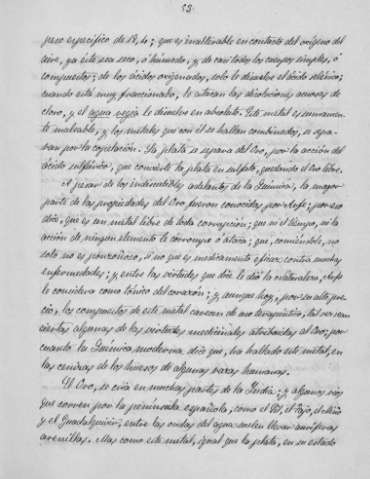 53.
peso específico de 19,40; que es inalterable en contacto del oxígeno del
aire, ya esté sea seco, ó húmedo, y de casi todos los cuerpos simples, ó
compuestos; de los ácidos oxigenados, solo le disuelve el ácido selénico;
cuando está muy fraccionado, le atacan las disoluciones acuosas de
cloro, y el agua regia le disuelve en absoluto. Este metal es sumamente
maleable, y los metales que con él se hallan combinados, se sepa-
ran por la copelación. La plata se separa del Oro, por la acción del
ácido sulfúrico, que convierte la plata en sulfato, quedando el Oro libre.
A pesar de los indiscutibles adelantos de la Química, la mayor
parte de las propiedades del Oro fueron conocidas por Arfe; pues nos
dice, que es un metal libre de toda corrupción; que ni el tiempo, ni la
acción de ningún elemento le corrompe ó altera; que, comiéndole, no
solo no es ponzoñoso, si no que es medicamento eficaz contra muchas
enfermedades; y entre las virtudes que dice le dió la naturaleza, Arfe
le considera como tónico del corazón; y aunque hoy, por su alto pre-
cio, los compuestos de este metal carecen de uso terapéutico, tal vez sean
ciertas algunas de las virtudes medicinales atribuidas al Oro; por
cuanto la Química moderna dice que, ha hallado este metal, en
las cenizas de los huesos de algunas razas humanas.
El Oro, se cria en muchas partes de la India; y algunos rios
que corren por la península española, como el Sil, el Tajo, el Miño
y el Guadalquivir; entre las ondas del agua suelen llevar auríferas
arenillas. Mas como este metal, igual que la plata, en su estado